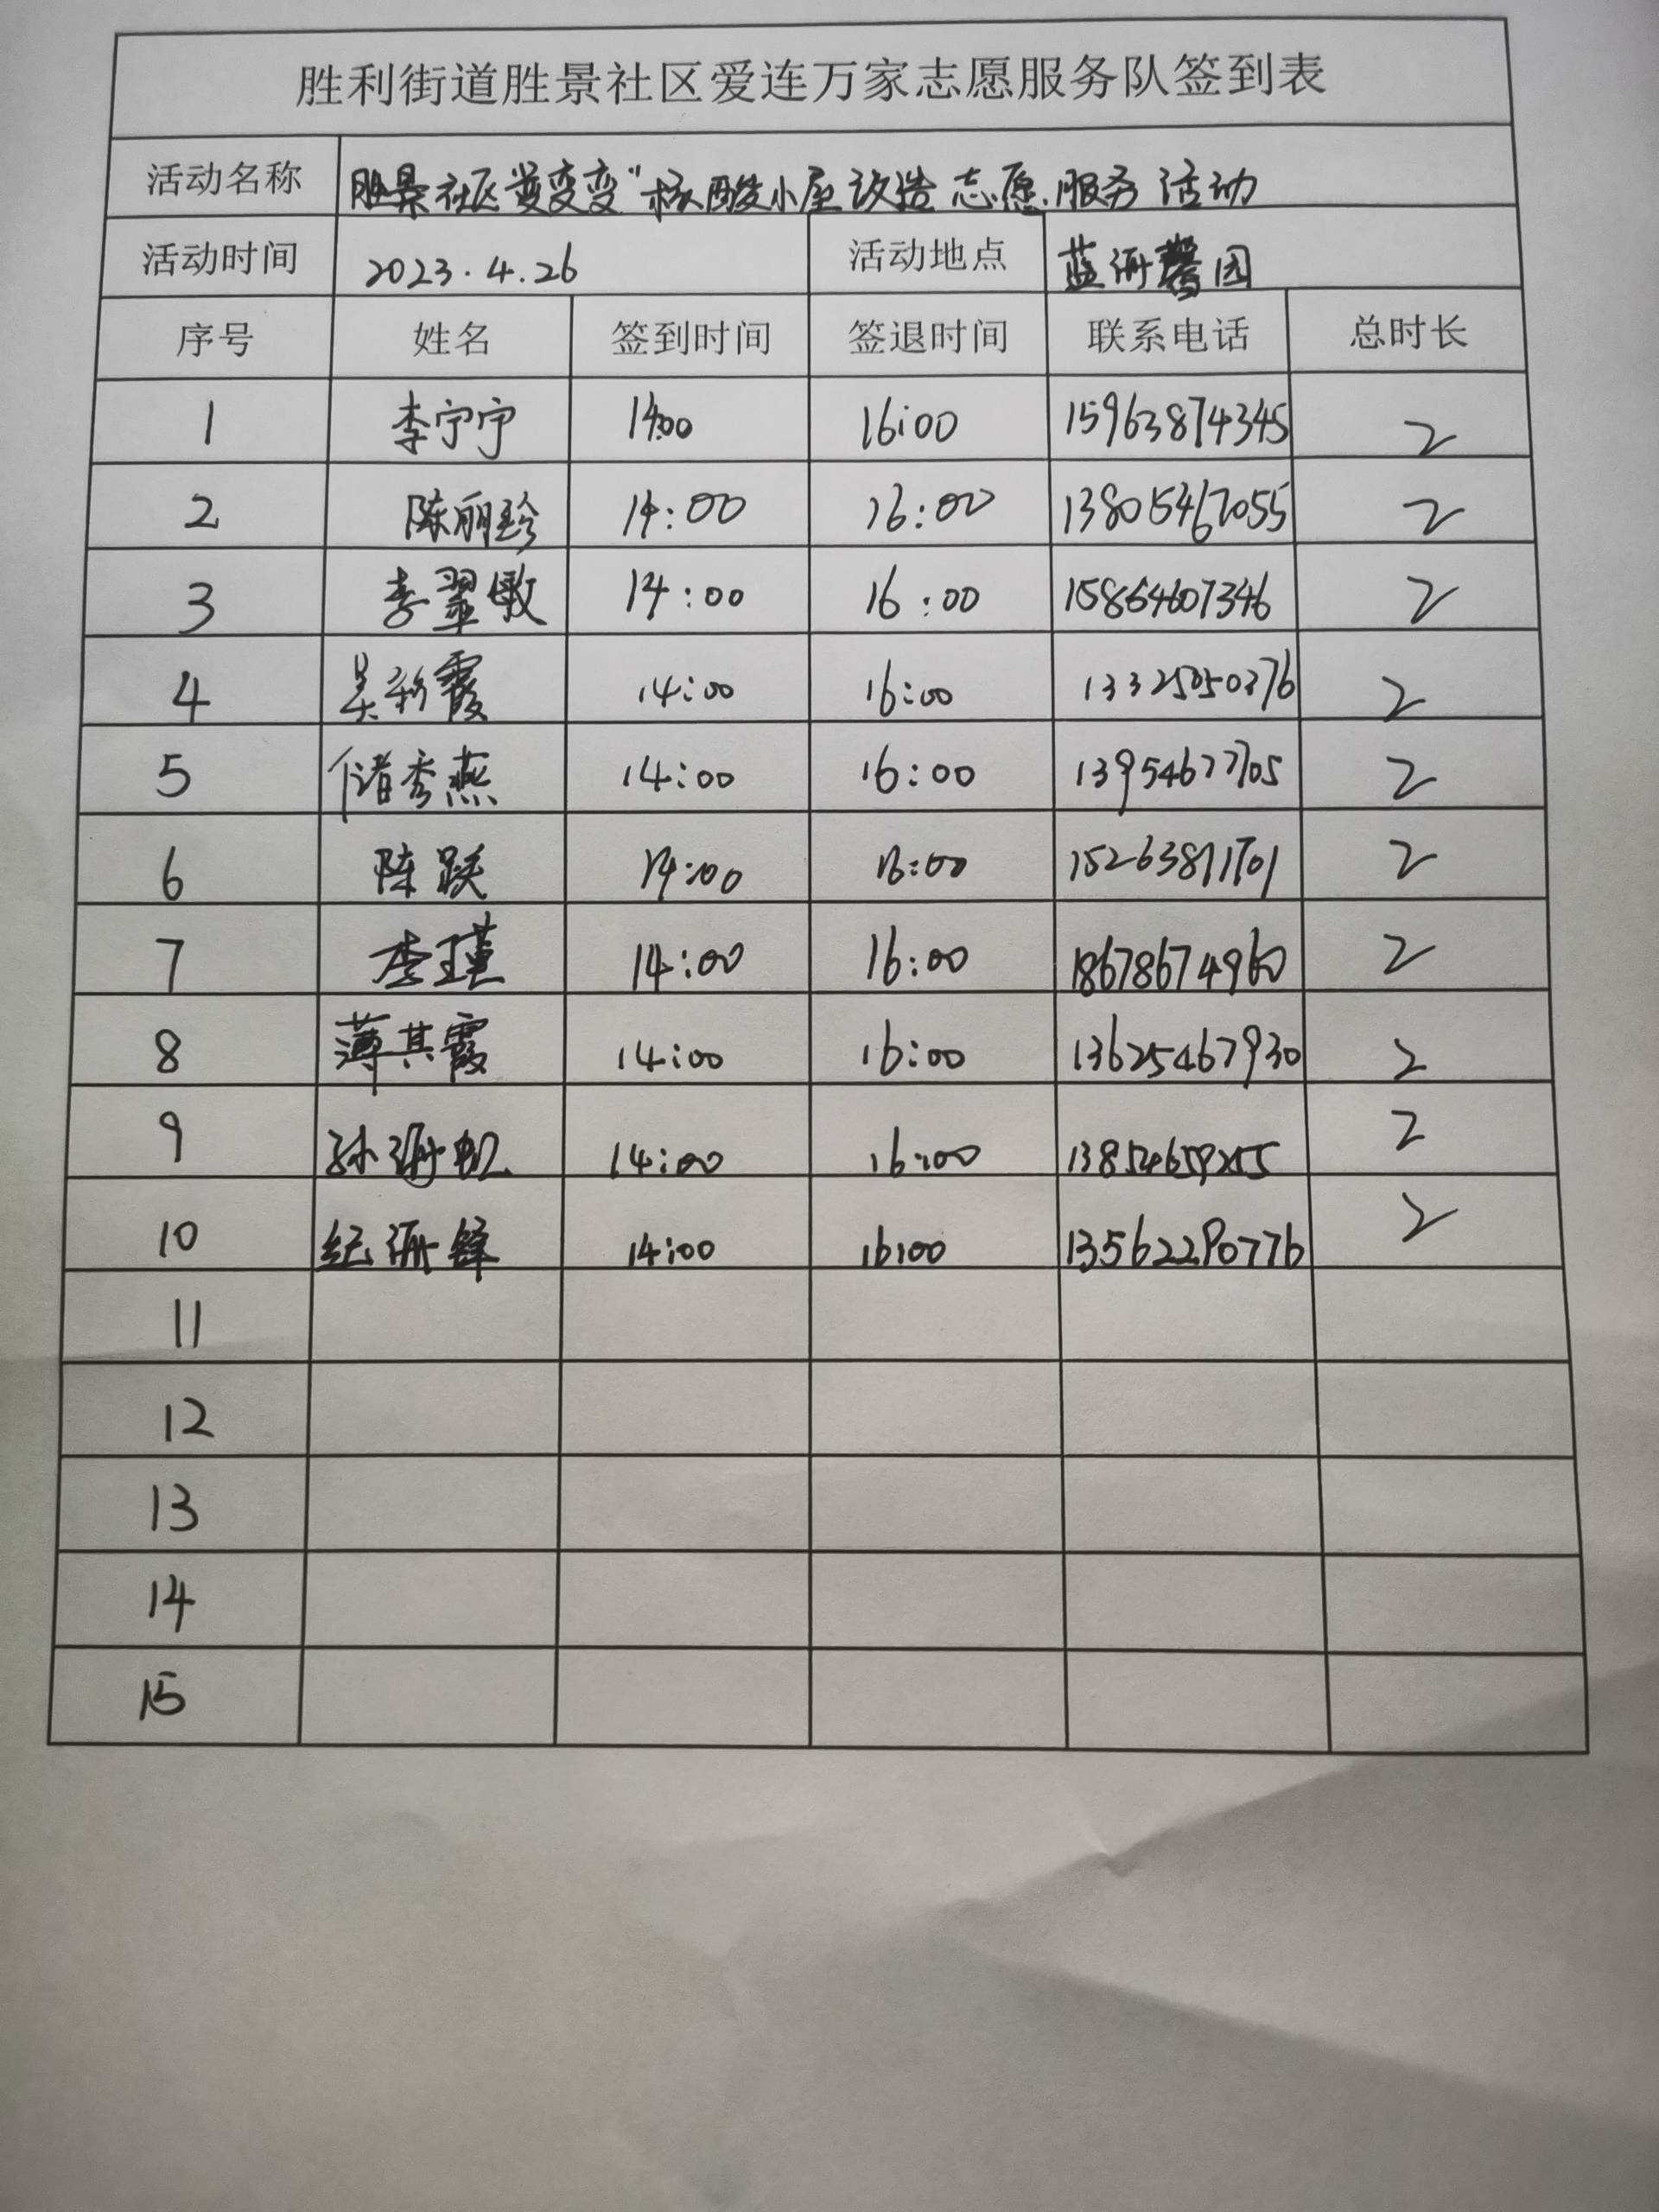 胜利街道胜景社区爱连万家志愿服务队签到表
活动名称 胜景社区“变变变”核酸小屋改造志愿服务活动
活动时间 2023.4.26 活动地点 蓝海馨园
序号 姓名 签到时间 签退时间 联系电话 总时长
1 李宁宁 14:00 16:00 15963874345 2
2 陈丽珍 14:00 16:00 13805467055 2
3 李翠敏 14:00 16:00 15864607346 2
4 吴新霞 14:00 16:00 13325050376 2
5 储秀燕 14:00 16:00 13954677705 2
6 陈跃 14:00 16:00 2
7 李瑾 14:00 16:00 18678674960 2
8 薄其霞 14:00 16:00 13625467930 2
9 孙 14:00 16:00 2
10 纪海锋 14:00 16:00 13562290776 2
11
12
13
14
15